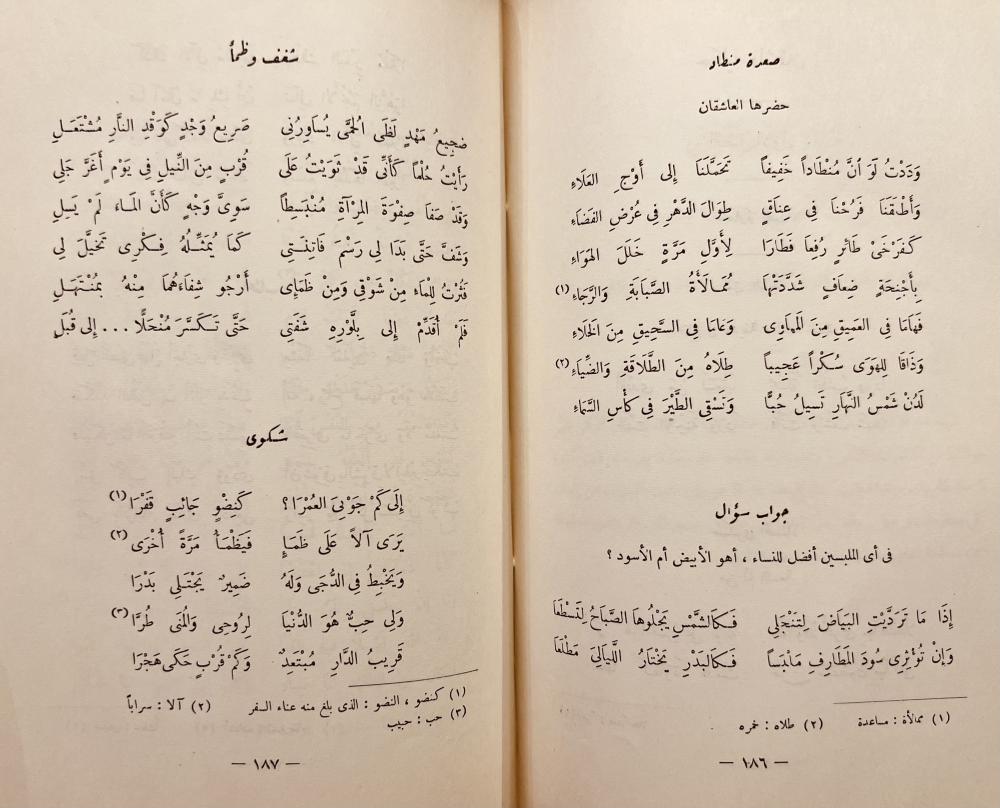 صعدة منطاد
حضرها العاشقان
وَدَدْتُ لَوَ اَنَّ مُنْطَاداً خَفِيفاً تَحَمَّلَنَا إِلى أَوْجِ العَلَاءِ
وَأَطْلَقَنَا فَرُحْنَا فِى عِنَاقٍ طِوَالَ الدَّهْرِ فِى عُرْضِ الفَضَاءِ
كَفَرْخَىْ طَائِرٍ رُفِعَا فَطَارَا لِأَوَّلِ مَرَّةٍ خَلَلَ الهَوَاءِ
بِأَجْنِحَةٍ ضِعَافٍ شَدَّدَتْهَا مُمَالَأَةُ الصَّبَابَةِ وَالرَّجَاءِ (١)
فَهَامَا فِى العَمِيقِ مِنَ المَهَاوِى وَعَامَا فِى السَّحِيقِ مِنَ الخَلَاءِ
وَذَاقَا لِلهَوَى سُكْراً عَجِيباً طِلَاهُ مِنَ الطَّلَاقَةِ وَالضِّيَاءِ (٢)
لَدُنْ شَمْسُ النَّهَارِ تَسِيلُ حُبًّا وَتَسْقِى الطَّيْرَ فِى كَأْسِ السَّمَاءِ
جواب سؤال
فى أى الملبسين أفضل للنساء ، أهو الأبيض أم الأسود ؟
إِذَا مَا تَرَدَّيْتِ البَيَاضَ لِتَنْجَلِى فَكَالشَّمْسِ يَجْلُوهَا الصَّبَاحُ لِتَسْطَعَا
وَإِنْ تُؤْثِرِى سُودَ المَطَارِفِ مَلْبَساً فَكَالبَدْرِ يَخْتَارُ اللَّيَالِىَ مَطْلَعَا
(١) ممالأة : مساعدة (٢) طلاه : خمره
— ١٨٦ —
شغف وظمأ
ضَجِيعُ مَهْدٍ لَظَى الحُمَّى يُسَاوِرُنِى صَرِيعُ وَجْدٍ كَوَقْدِ النَّارِ مُشْتَعِلِ
رَأَيْتُ حُلْماً كَأَنِّى قَدْ ثَوَيْتُ عَلَى قُرْبٍ مِنَ النِّيلِ فِى يَوْمٍ أَغَرَّ جَلِى
وَقَدْ صَفَا صِفْوَةَ المِرْآةِ مُنْبَسِطاً سَوِىَّ وَجْهٍ كَأَنَّ المَاءَ لَمْ يَسِلِ
وَشَفَّ حَتَّى بَدَا لِى رَسْمُ فَاتِنَتِى كَمَا يُمَثِّلُهُ فِكْرِى تَخَيَّلَ لِى
فَثُرْتُ لِلْمَاءِ مِنْ شَوْقِى وَمِنْ ظَمَإِى أَرْجُو شِفَاءَهُمَا مِنْهُ بِمُنْتَهَلِ
فَلَمْ أُقَدِّمْ إِلى بِلَّوْرِهِ شَفَتِى حَتَّى تَكَسَّرَ مُنْحَلًّا ... إِلى قُبَلِ
شكوى
إِلَى كَمْ جَوْبِىَ العُمْرَا ؟ كَنِضْوٍ جَائِبٍ قَفْرَا (١)
يَرَى آلاً عَلَى ظَمَإٍ فَيَظْمَأُ مَرَّةً أُخْرَى (٢)
وَيَخْبِطُ فِى الدُّجَى وَلَهُ ضَمِيرٌ يَجْتَلِى بَدْرَا
وَلِى حِبٌّ هُوَ الدُّنْيَا لِرُوحِى وَالمُنَى طُرَّا (٣)
قَرِيبُ الدَّارِ مُبْتَعِدٌ وَكَمْ قُرْبٍ حَكَى هَجْرَا
(١) كنضو ، النضو : الذى بلغ منه عناء السفر (٢) آلا : سراباً
(٣) حب : حبيب
— ١٨٧ —